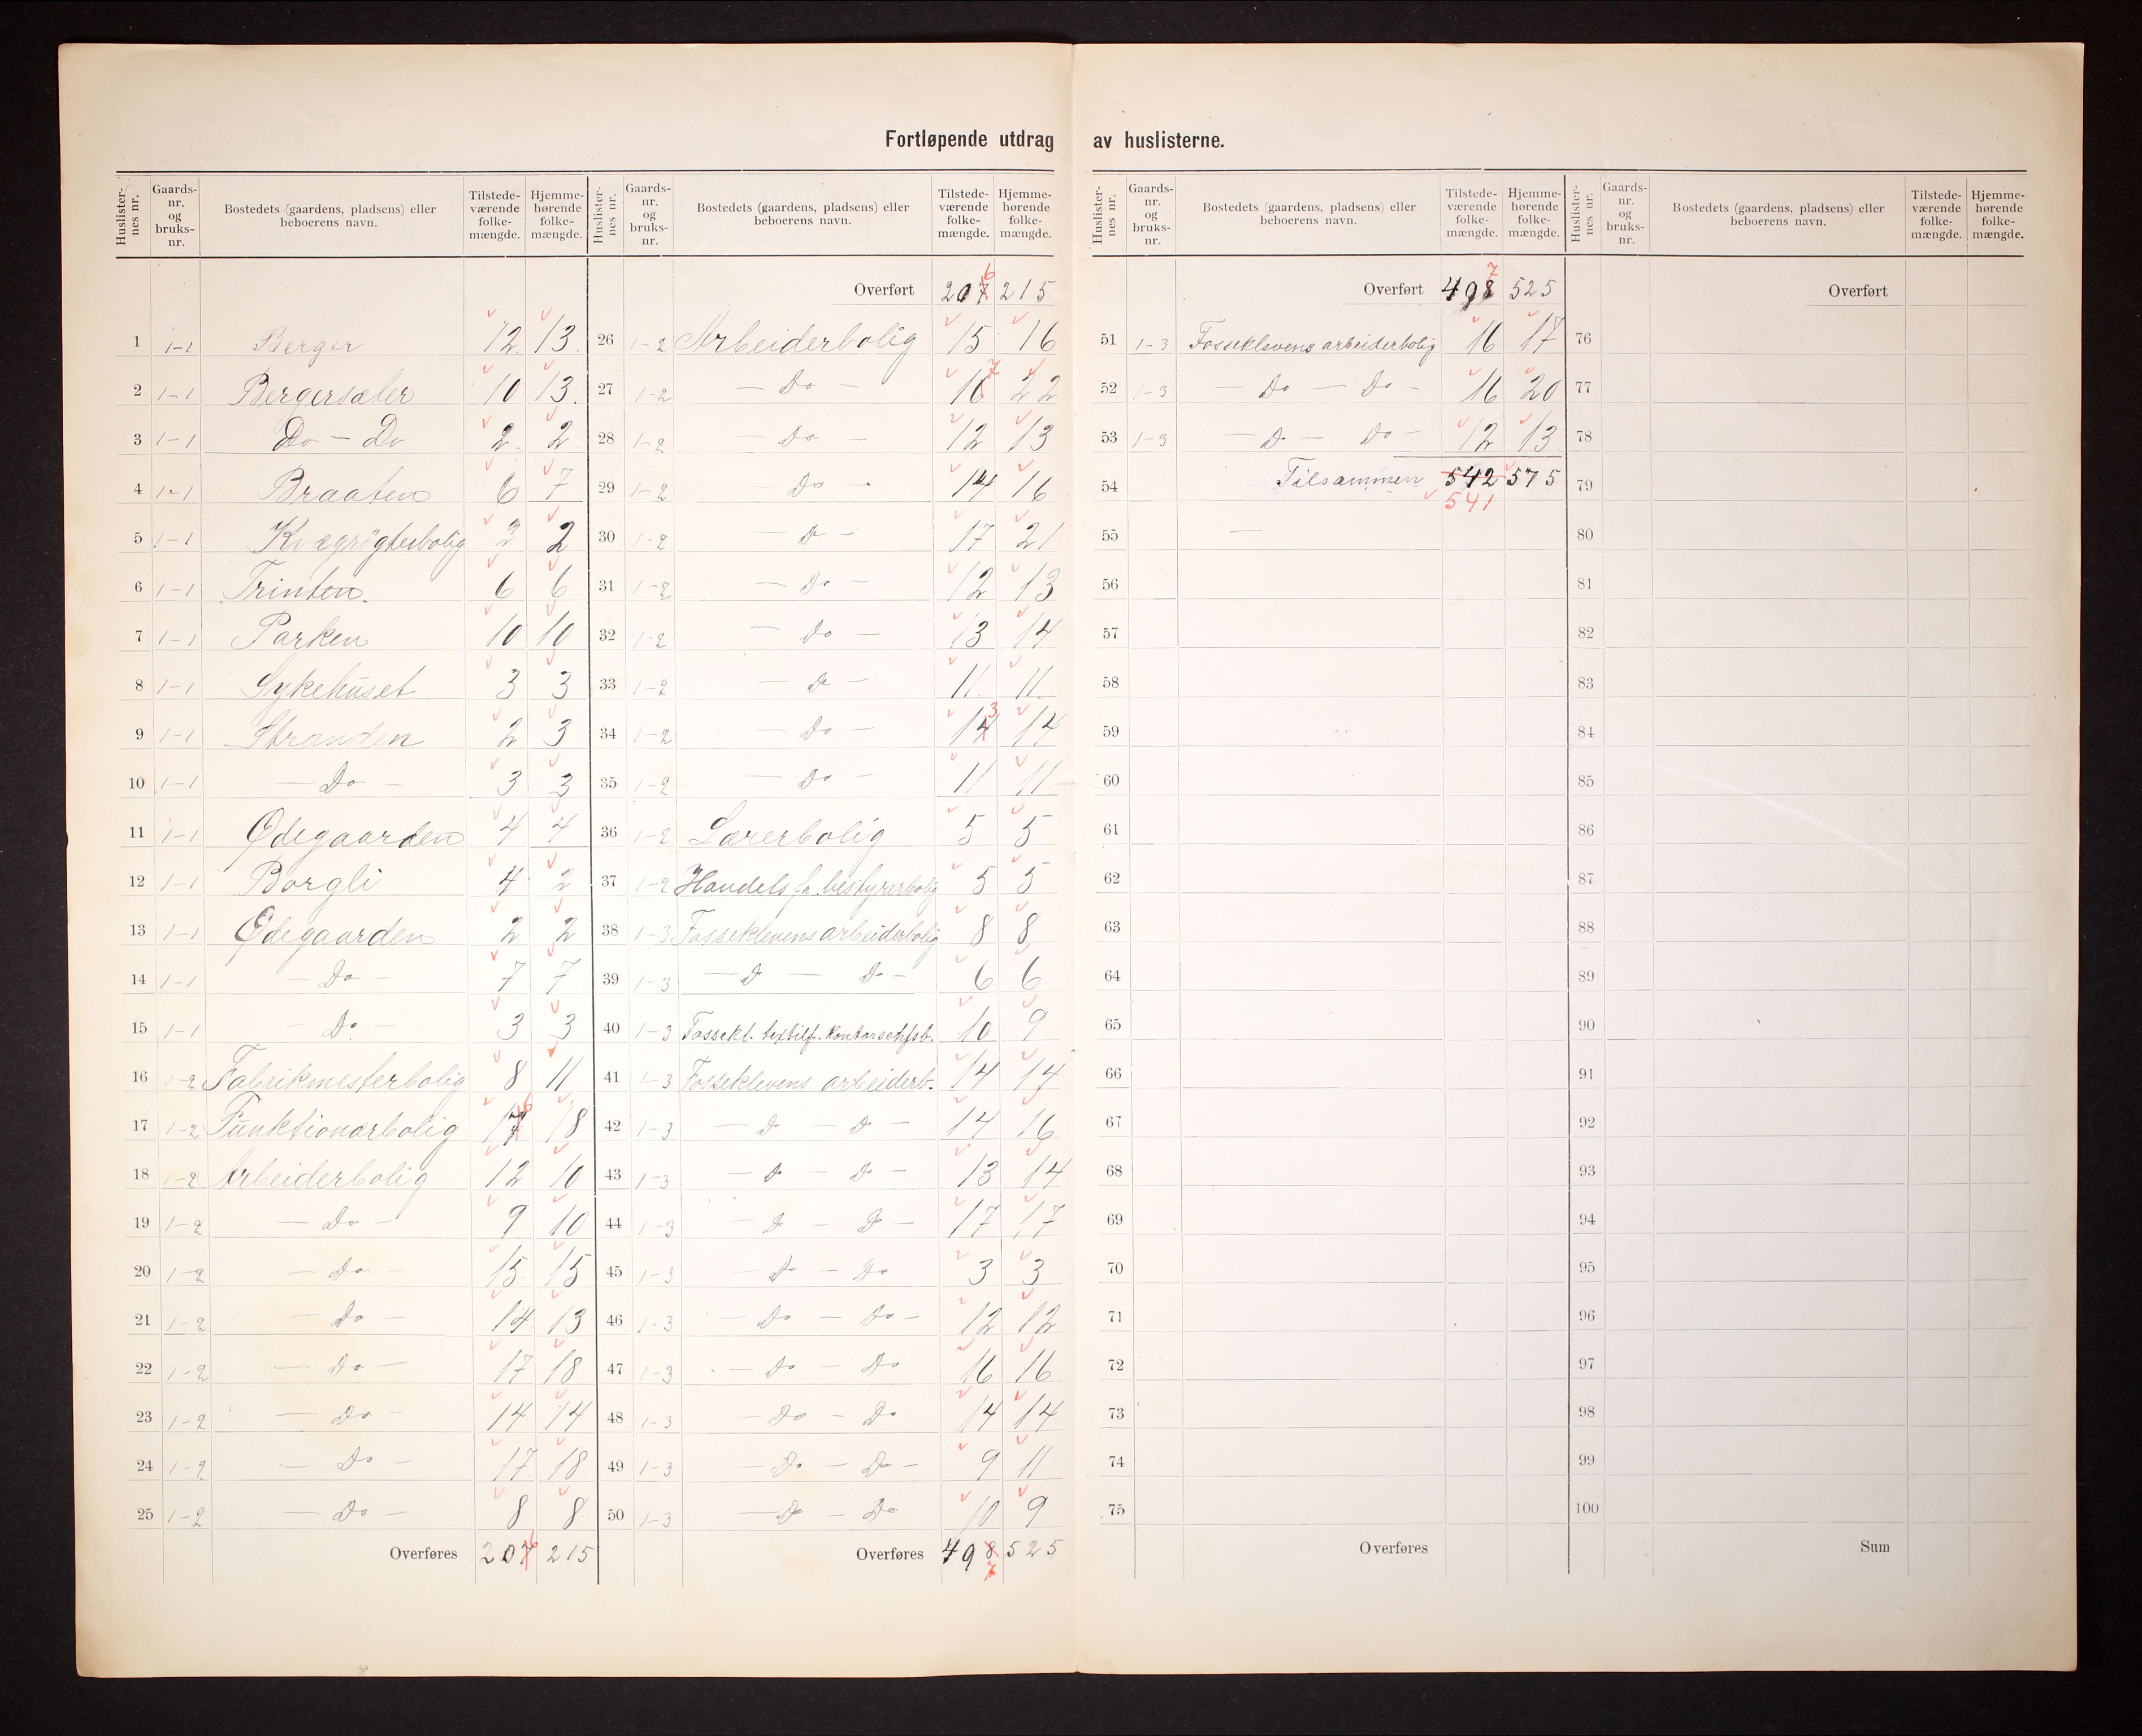 Fortløpende utdrag av huslisterne.
Huslisternes nr. Gaards-nr. og bruks-nr. Bostedets (gaardens, pladsens) eller beboerens navn. Tilstede-værende folke-mængde. Hjemme-hørende folke-mængde.
1 1-1 Berger 12 13
2 1-1 Bergersæter 10 13
3 1-1 Do - Do 2 2
4 1-1 Braaten 6 7
5 1-1 Kvægrøgterbolig 2 2
6 1-1 Trinten 6 6
7 1-1 Parken 10 10
8 1-1 Sykehuset 3 3
9 1-1 Stranden 2 3
10 1-1 - Do - 3 3
11 1-1 Ødegaarden 4 4
12 1-1 Borgli 4 2
13 1-1 Ødegaarden 2 2
14 1-1 - Do - 7 7
15 1-1 - Do - 3 3
16 1-2 Fabrikmesterbolig 8 11
17 1-2 Funktionærbolig 17 6 18
18 1-2 Arbeiderbolig 12 10
19 1-2 - Do - 9 10
20 1-2 - Do - 15 15
21 1-2 - Do - 14 13
22 1-2 - Do - 17 18
23 1-2 - Do - 14 14
24 1-2 - Do - 17 18
25 1-2 - Do - 8 8
Overføres 207 6 215
Huslisternes nr. Gaards-nr. og bruks-nr. Bostedets (gaardens, pladsens) eller beboerens navn. Tilstede-værende folke-mængde. Hjemme-hørende folke-mængde.
Overført 207 6 215
26 1-2 Arbeiderbolig 15 16
27 1-2 - Do - 16 7 22
28 1-2 - Do - 12 13
29 1-2 - Do - 14 16
30 1-2 - Do - 17 21
31 1-2 - Do - 12 13
32 1-2 - Do - 13 14
33 1-2 - Do - 11 11
34 1-2 - Do - 14 3 14
35 1-2 - Do - 11 11
36 1-2 Lærerbolig 5 5
37 1-2 Handels f. bestyrerbolig 5 5
38 1-3 Fosseklevens arbeiderbolig 8 8
39 1-3 - Do - Do - 6 6
40 1-3 Fossekl. textilf. kontorschefsb. 10 9
41 1-3 Fosseklevens arbeiderb. 14 14
42 1-3 - Do - Do - 14 16
43 1-3 - Do - Do - 13 14
44 1-3 - Do - Do - 17 17
45 1-3 - Do - Do 3 3
46 1-3 - Do - Do - 12 12
47 1-3 - Do - Do 16 16
48 1-3 - Do - Do 14 14
49 1-3 - Do - Do - 9 11
50 1-3 - Do - Do 10 9
Overføres 498 7 525
Huslisternes nr. Gaards-nr. og bruks-nr. Bostedets (gaardens, pladsens) eller beboerens navn. Tilstede-værende folke-mængde. Hjemme-hørende folke-mængde.
Overført 498 7 525
51 1-3 Fosseklevens arbeiderbolig 16 17
52 1-3 - Do - Do - 16 20
53 1-3 - Do - Do - 12 13
54 Tilsammen 542 575
541
55
56
57
58
59
60
61
62
63
64
65
66
67
68
69
70
71
72
73
74
75
Overføres
Huslisternes nr. Gaards-nr. og bruks-nr. Bostedets (gaardens, pladsens) eller beboerens navn. Tilstede-værende folke-mængde. Hjemme-hørende folke-mængde.
Overført
76
77
78
79
80
81
82
83
84
85
86
87
88
89
90
91
92
93
94
95
96
97
98
99
100
Sum